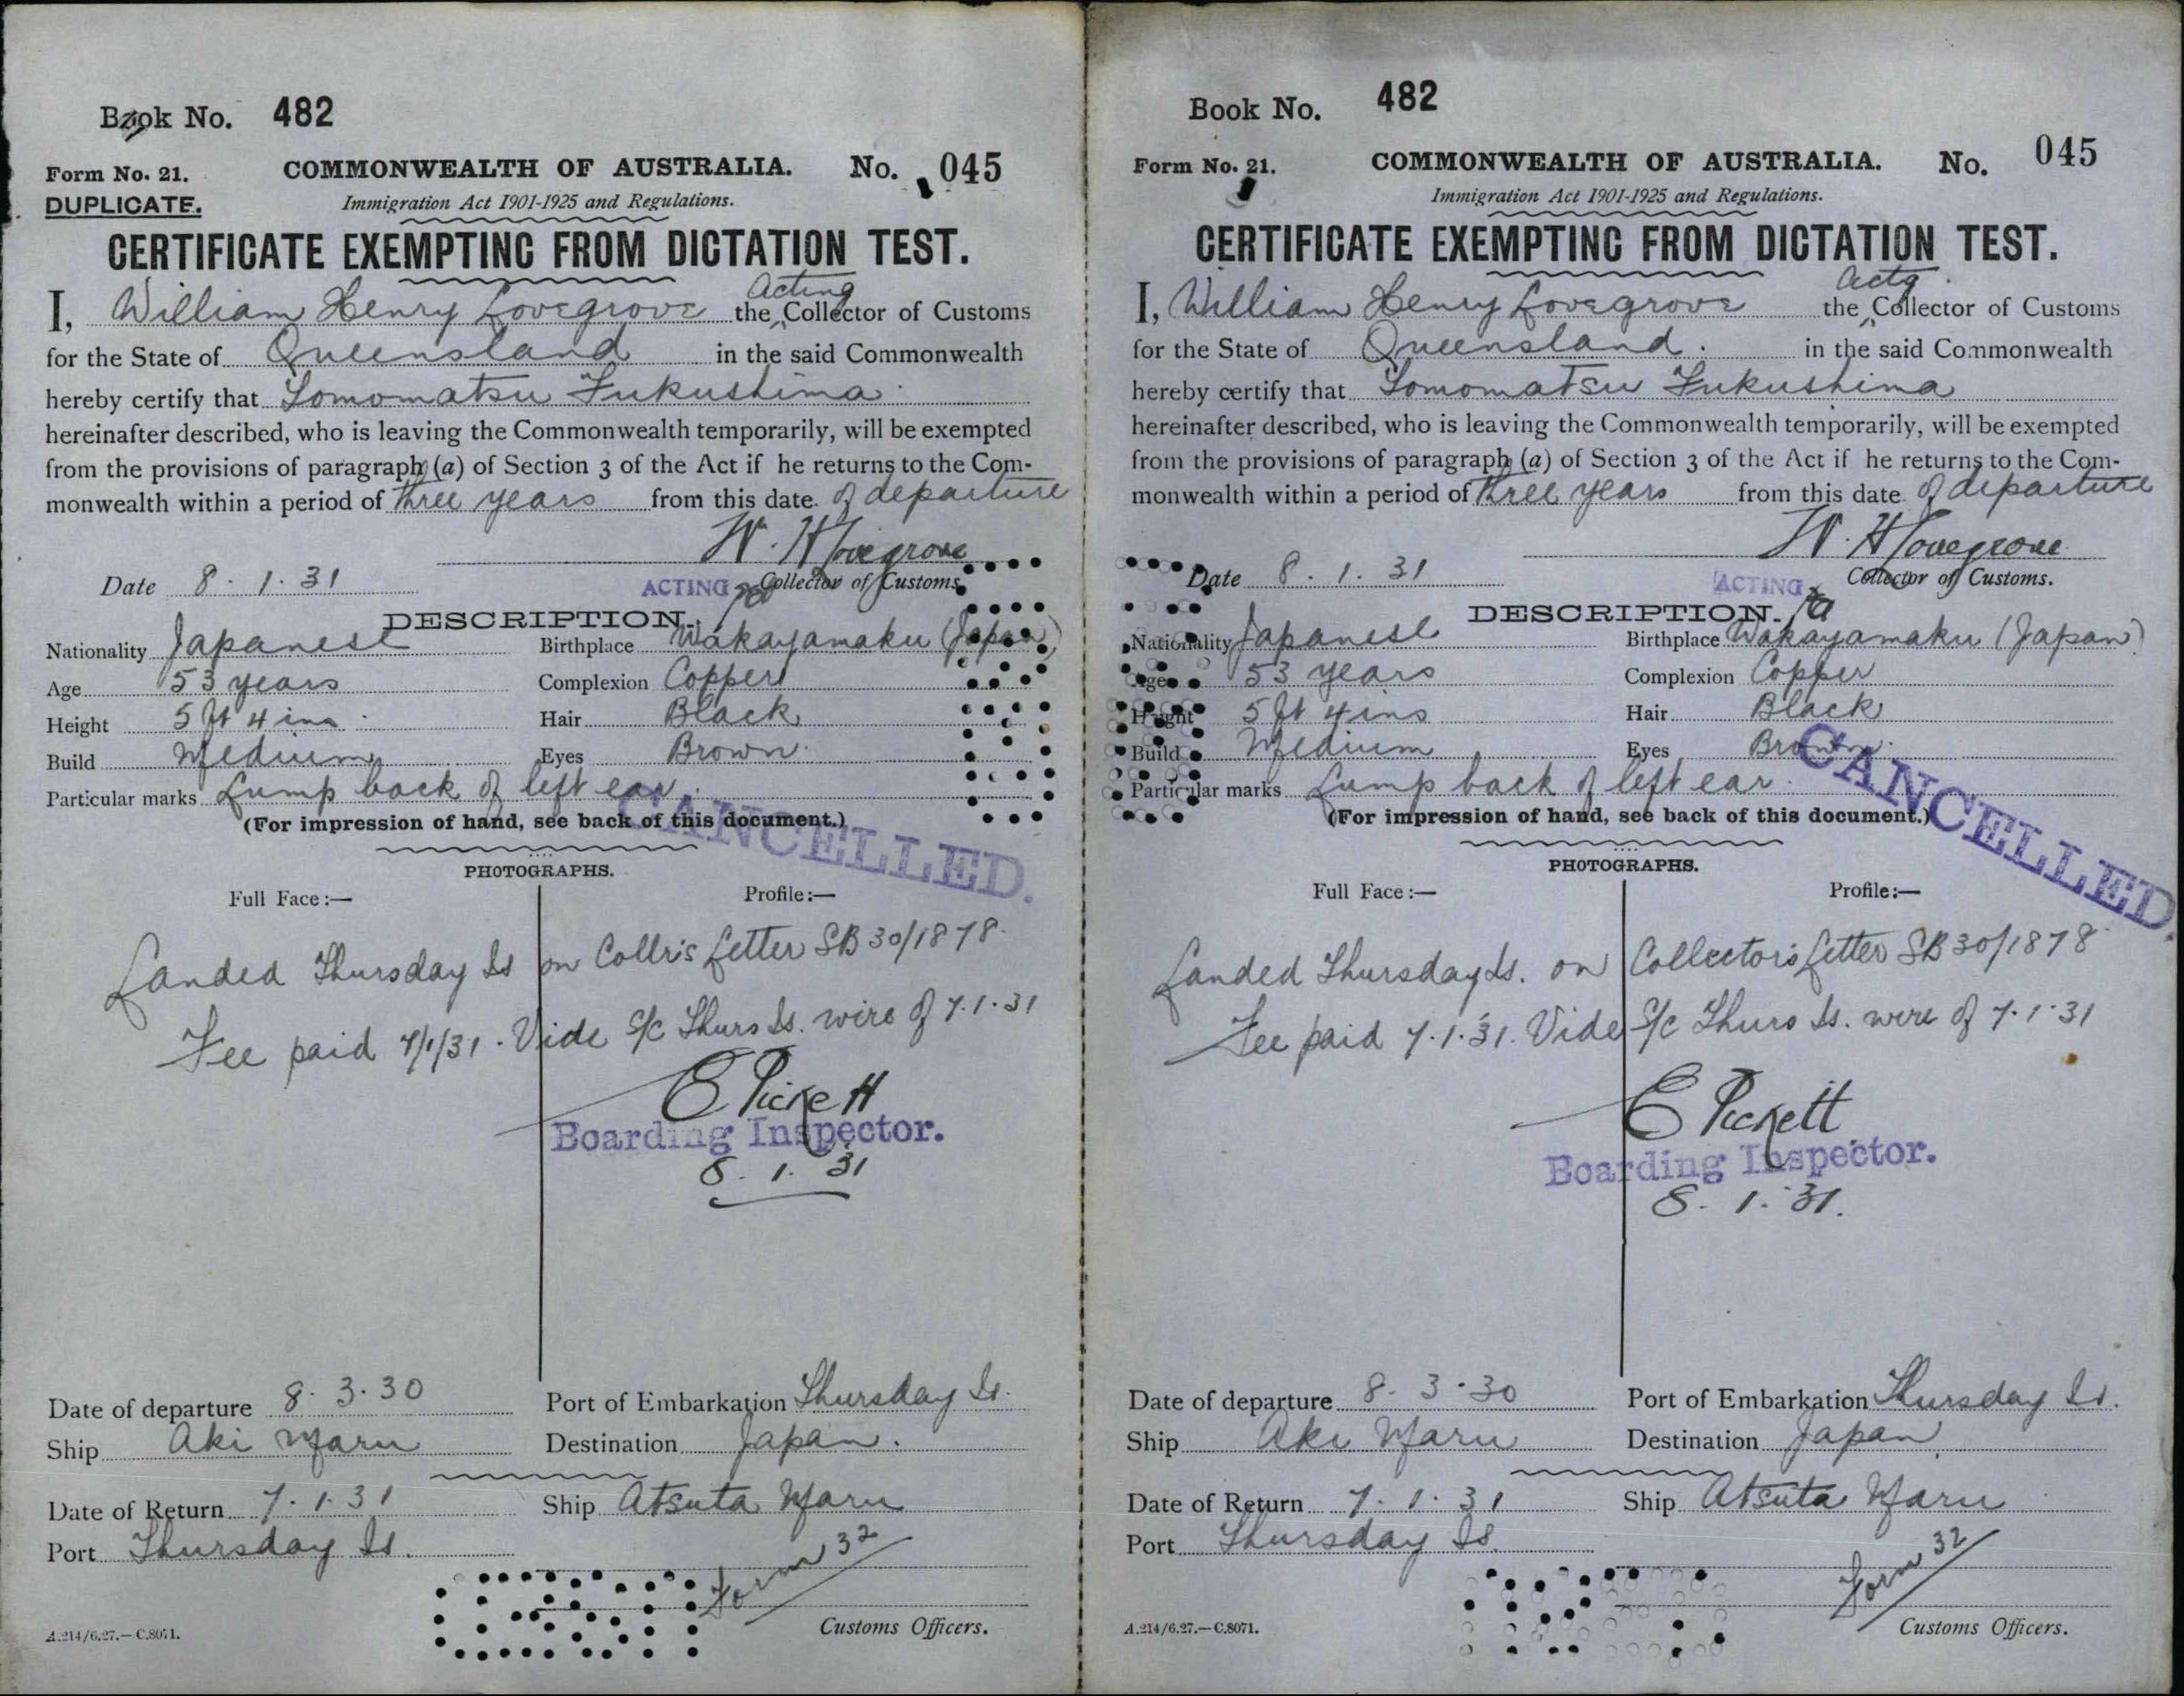 Book No. 482
Form No. 21. COMMONWEALTH OF AUSTRALIA. No. 045
DUPLICATE. Immigration Act 1901-1925 and Regulations.
CERTIFICATE EXEMPTING FROM DICTATION TEST.
Acting
I, William Henry Lovegrove the Collector of Customs
for the State of Queensland in the said Commonwealth
hereby certify that Tomomatsu Fukushima
hereinafter described, who is leaving the Commonwealth temporarily, will be exempted
from the provisions of paragraph (a) of Section 3 of the Act if he returns to the Com-
monwealth within a period of three years from this date of departure
W. H Lovegrove
Date 8. 1. 31 ACTING Collector of Customs.
DESCRIPTION.
Nationality Japanese Birthplace Wakayamaku (Japan)
Age 53 years Complexion Copper
Height 5 ft 4 ins Hair Black
Build Medium Eyes Brown
Particular marks Lump back of left ear.
(For impression of hand, see back of this document.)
CANCELLED.
PHOTOGRAPHS.
Full Face:— Profile:—
Landed Thursday Is on Collr's letter SB 30/1878.
Fee paid 7/1/31. Vide S/C Thurs Is. wire of 7.1.31
E Pickett
Boarding Inspector.
8. 1. 31
Date of departure 8. 3. 30 Port of Embarkation Thursday Is.
Ship Aki Maru Destination Japan.
Date of Return 7. 1. 31 Ship Atsuta Maru
Port Thursday Is.
Form 32
A.214/6.27.—C.8071. Customs Officers.
Book No. 482
Form No. 21. COMMONWEALTH OF AUSTRALIA. No. 045
Immigration Act 1901-1925 and Regulations.
CERTIFICATE EXEMPTING FROM DICTATION TEST.
Actg.
I, William Henry Lovegrove the Collector of Customs
for the State of Queensland. in the said Commonwealth
hereby certify that Tomomatsu Fukushima
hereinafter described, who is leaving the Commonwealth temporarily, will be exempted
from the provisions of paragraph (a) of Section 3 of the Act if he returns to the Com-
monwealth within a period of three years from this date of departure
W. H Lovegrove
Date 8. 1. 31 ACTING Collector of Customs.
DESCRIPTION.
Nationality Japanese Birthplace Wakayamaku (Japan)
Age 53 years Complexion Copper
Height 5 ft 4 ins Hair Black
Build Medium Eyes Brown.
Particular marks Lump back of left ear.
(For impression of hand, see back of this document.)
CANCELLED.
PHOTOGRAPHS.
Full Face:— Profile:—
Landed Thursday Is. on Collector's letter SB 30/1878
Fee paid 7.1.31. Vide S/C Thurs Is. wire of 7.1.31
E Pickett
Boarding Inspector.
8. 1. 31.
Date of departure 8. 3. 30 Port of Embarkation Thursday Is.
Ship Aki Maru Destination Japan
Date of Return 7. 1. 31 Ship Atsuta Maru
Port Thursday Is.
Form 32
A.214/6.27.—C.8071. Customs Officers.